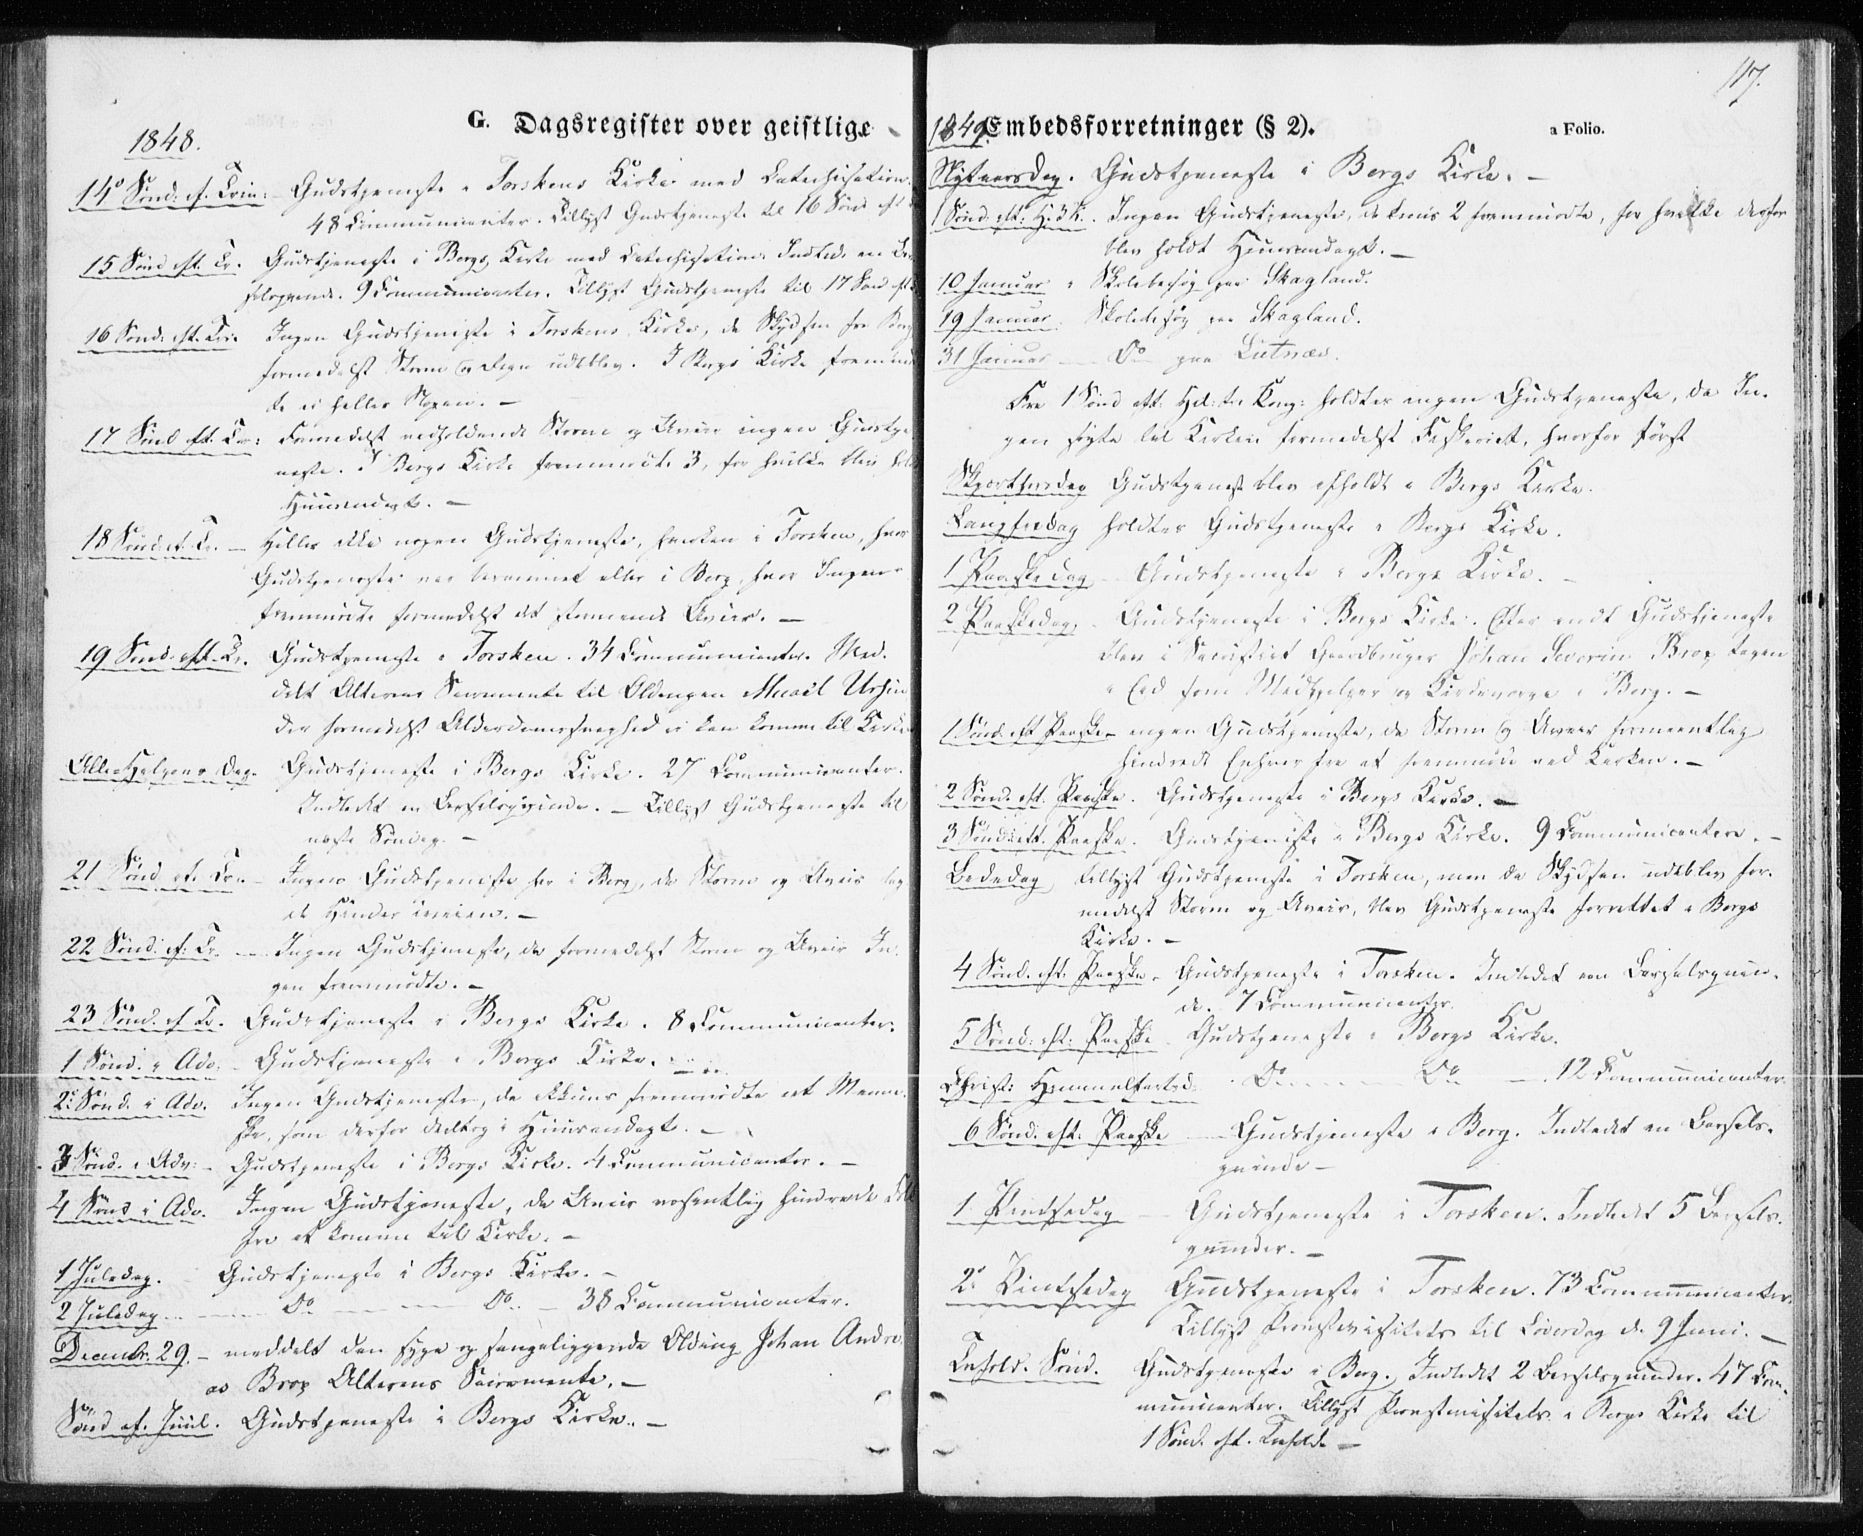 117.
G. Dagsregister over geistlige Embedsforretninger (§ 2).
a Folio.
1848.
14de Sønd: ef. Trin: Gudstjeneste i Torskens Kirke med Catechisation.
48 Communicanter. Tillyst Gudstjeneste til 16 Sønd eft
15 Sønd eft. Tr. Gudstjeneste i Bergs Kirke med Catechisation. Indled. en Bar-
selqvinde. 9 Communicanter. Tillyst Gudstjeneste til 17 Sønd eft
16 Sønd. eft. Tr. Ingen Gudstjeneste i Torskens Kirke, da Skydsen fra Berg
formedelst Storm og Regn udeblev. I Bergs Kirke fremmød-
te ei heller Nogen. —
17 Sønd eft. Tr: Formedelst vedholdende Storm og Uveir ingen Gudstje-
neste. I Bergs Kirke fremmødte 3, for hvilke blev holdt
Huusandagt. —
18 Sønd ef. Tr. — Heller ikke nogen Gudstjeneste, hverken i Torsken, hvor
Gudstjeneste var berammet eller i Berg, hvor Ingen
fremmødte formedelst det stormende Uveir. —
19 Sønd. eft. Tr. Gudstjeneste i Torsken. 34 Communicanter. Med-
delt Alterens Sacramente til Oldingen Micael Ursin
der formedelst Alderdomssvaghed ei kan komme til Kirke
Alle Helgens Dag. Gudstjeneste i Bergs Kirke. 27 Communicanter.
Indledet en Barselqvinde. — Tillyst Gudstjeneste til
næste Søndag. —
21 Sønd ef. Tr. Ingen Gudstjeneste her i Berg, da Storm og Uveir lag-
de Hinder iveien. —
22 Sønd. ef: Tr. — Ingen Gudstjeneste, da formedelst Storm og Uveir In-
gen fremmødte. —
23 Sønd. ef Tr. Gudstjeneste i Bergs Kirke. 8 Communicanter.
1 Sønd. i Adv. Gudstjeneste i Bergs Kirke.
2. Sønd. i Adv. Ingen Gudstjeneste, da ikkuns fremmødte et Menne-
ske, som derfor deeltog i Huusandagt. —
3 Sønd. i Adv: — Gudstjeneste i Bergs Kirke. 4 Communicanter. —
4 Sønd i Adv. Ingen Gudstjeneste, da Uveir væsentlig hindrede Folk
fra at komme til Kirke. —
1 Juledag. Gudstjeneste i Bergs Kirke. —
2 Juledag. — Do — Do — 38 Communicanter.
Decembr. 29. — meddelt den syge og sengeliggende Olding Johan Andre-
as Brox Alterens Sacramente. —
Sønd ef. Juul. Gudstjeneste i Bergs Kirke. —
1849.
Nytaarsdag. Gudstjeneste i Bergs Kirke. —
1 Sønd. eft: H. 3 K. Ingen Gudstjeneste, da kuns 2 fremmødte, for hvilke derfor
blev holdt Huusandagt. —
10 Januar Skolebesøg paa Skagland.
19 Januar. Skolebesøg paa Skagland.
31 Januar — Do paa Lutnæs.
Fra 1 Sønd eft. Hel: tre Kong: holdtes ingen Gudstjeneste, da In-
gen søgte til Kirken formedelst Fiskeriet, hvorfor først
Skjærthursdag Gudstjeneste blev afholdt i Bergs Kirke.
Langfredag holdtes Gudstjeneste i Bergs Kirke.
1 Paaskedag — Gudstjeneste i Bergs Kirke. —
2 Paaskedag — Gudstjeneste i Bergs Kirke. Efter endt Gudstjeneste
blev i Sacristiet Gaardbruger Johan Severin Brox tagen
i Eed som Medhjelper og Kirkeværge i Berg. —
1. Sønd. eft Paaske — ingen Gudstjeneste, da Storm og Uveir formeentlig
hindrede Enhver fra at fremmøde ved Kirken. —
2 Sønd. eft. Paaske. Gudstjeneste i Bergs Kirke. —
3 Sønd. eft. Paaske. Gudstjeneste i Bergs Kirke. 9 Communicantere. —
Bededag tillyst Gudstjeneste i Torsken, men da Skydsen udeblev for-
medelst Storm og Uveir, blev Gudstjeneste forrettet i Bergs
Kirke. —
4 Sønd. eft. Paaske. Gudstjeneste i Torsken. Indledet een Barselqvin-
de. 7 Communicanter.
5 Sønd. eft. Paaske. Gudstjeneste i Bergs Kirke.
Christ: Himmelfartsd: Do — Do — 12 Communicanter.
6 Sønd. eft. Paaske — Gudstjeneste i Berg. Indledet en Barsels-
qvinde —
1 Pindsedag — Gudstjeneste i Torsken. Indledt 5 Barsels-
qvinder. —
2. Pintsedag Gudstjeneste i Torsken. 73 Communicanter.
Tillyst Provstevisitats til Løverdag d. 9 Juni. —
Trefold. Sønd. Gudstjeneste i Berg. Indledt 2 Barselqvinder. 47 Com-
municanter. Tillyst Provstevisitats i Bergs Kirke til
1 Sønd. eft. Trefold. —